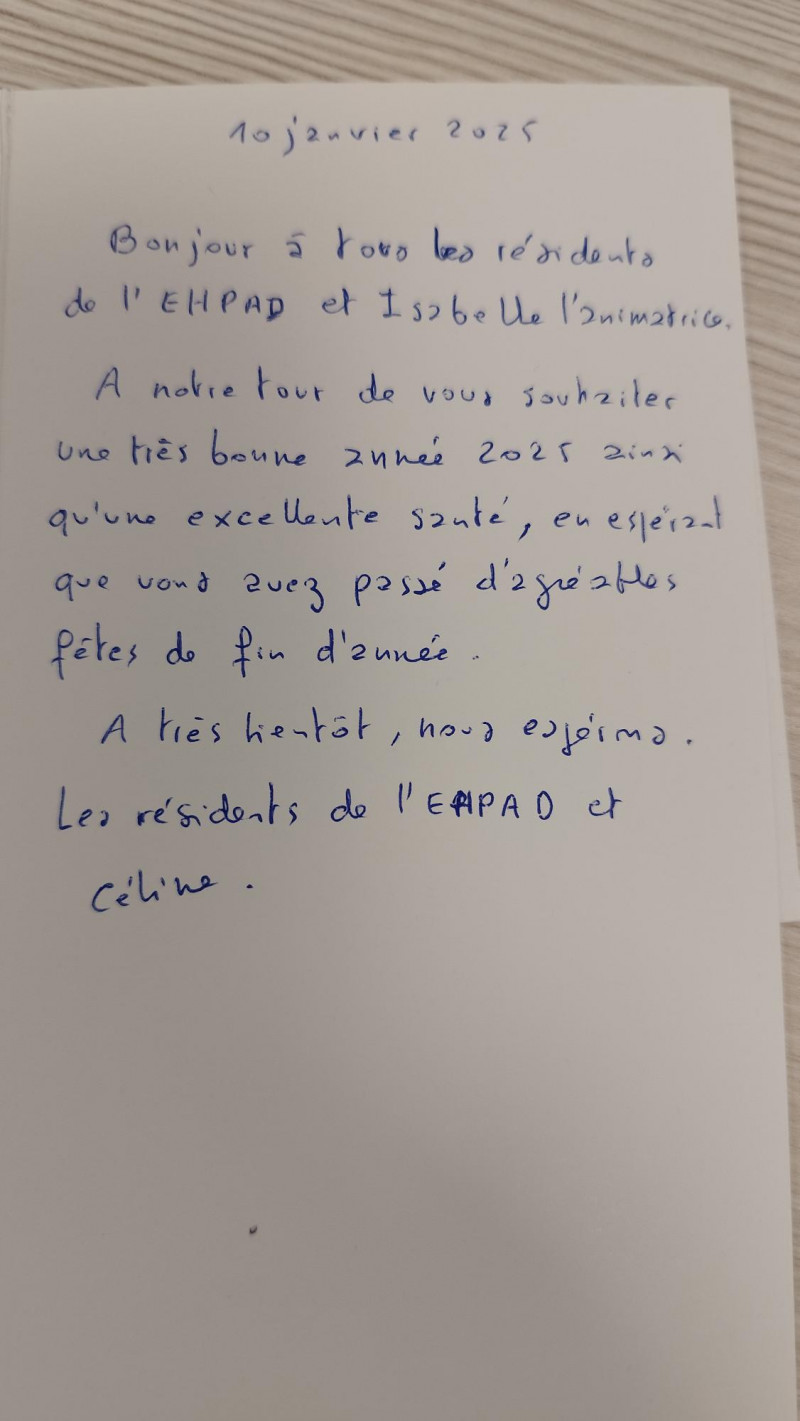 10 janvier 2025
Bonjour à tous les résidents
de l'EHPAD et Isabelle l'animatrice.
A notre tour de vous souhaiter
une très bonne année 2025 ainsi
qu'une excellente santé, en espérant
que vous avez passé d'agréables
fêtes de fin d'année.
A très bientôt, nous espérons.
Les résidents de l'EHPAD et
Céline.